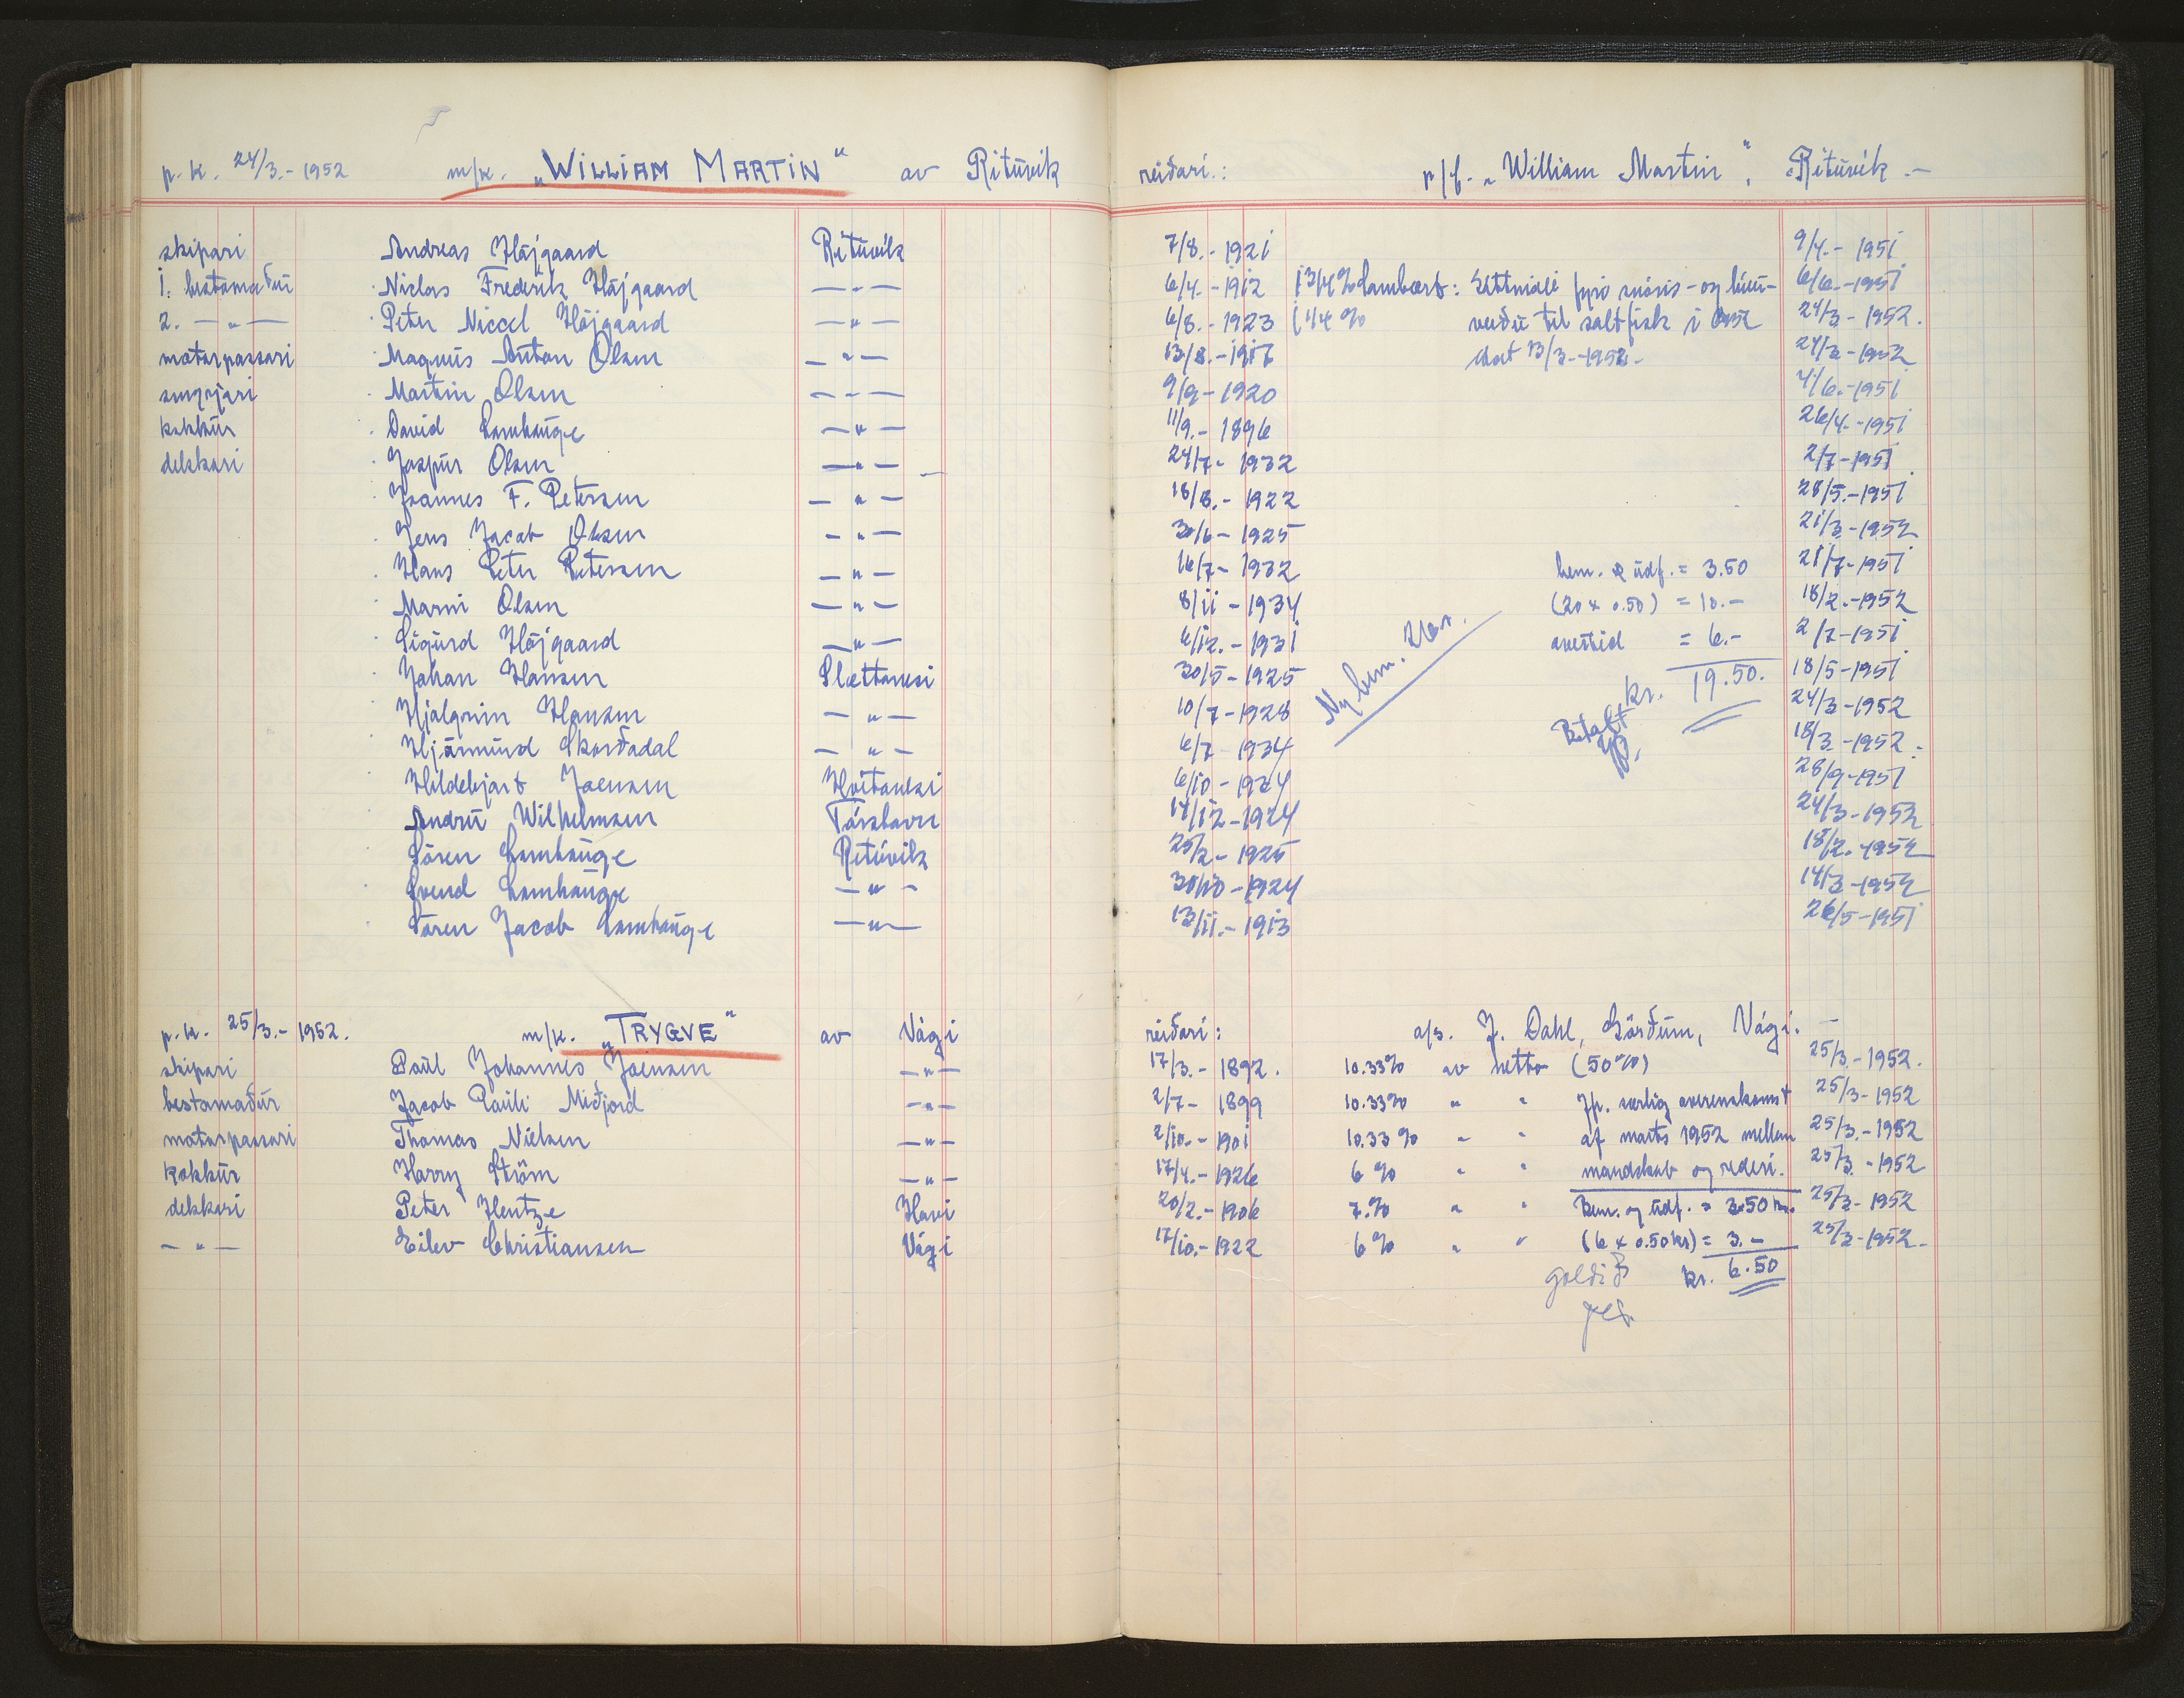 p.k. 24/3.-1952 m/k. „WILLIAM MARTIN“ av Ritúvík reiðari.: p/f. „William Martin“, Ritúvík.-
skipari Andreas Højgaard Ritúvík 7/8.-1921 9/4.-1951
1. bestamaður Niclas Frederik Højgaard —"— 6/4.-1912 13/4% 6/6.-1951
2. —"— Peter Niccel Højgaard —"— 6/8.-1923 1/4% til saltfisk í 24/3-1952.
motorpassari Magnus Anton Olsen —"— 13/8.-1917 dat 13/3-1952- 24/3-1952
Martin Olsen —"— 9/9-1920 4/6.-1951
kokkur David Lamhauge —"— 11/9.-1896 26/4.-1951
dekkari Jaspur Olsen —"— 24/7-1932 2/7-1951
Joannes F. Petersen —"— 18/8.-1922 28/5.-1951
Jens Jacob Olsen —"— 30/6-1925 21/3-1952
Hans Peter Petersen —"— 16/7-1932 hem. & údf. = 3.50 21/7-1951
Marni Olsen —"— 8/11-1934 (20 x 0.50) = 10.- 18/2.-1952
Sigurd Højgaard —"— 6/12.-1931 overtid = 6.- 2/7-1951
Johan Hansen Slættanesi 30/5-1925 kr. 19.50. 18/5-1951
Hjalgrim Hansen —"— 10/7-1928 Betalt 24/3-1952
Hjørmund Skorðadal —"— 6/7 1934 18/3-1952.
Hildebjart Joensen Hvítanesi 6/10-1934 28/9-1951
Andru Wilhelmsen Tórshavn 17/12-1924 24/3-1952
Sören Lamhauge Ritúvík 25/2-1925 18/2.-1952
Svend Lamhauge —"— 30/10-1924 14/3-1952
Sören Jacob Lamhauge —"— 13/11.-1913 26/5-1951
p.k. 25/3.-1952. m/k. „TRYGVE“ av Vági reiðari: a/s. J. Dahl, Görðum, Vági.-
skipari Paul Johannes Joensen —"— 17/3.-1892. 10.33% av netto (50%) 25/3.-1952.
bestamaður Jacob Pauli Miðjord —"— 2/7-1899 10.33% " " Jfr. særlig overenskomst 25/3-1952
motorpassari Thomas Nielsen —"— 2/10.-1901 10.33% " " af marts 1952 mellem 25/3.-1952
kokkur Harry Ström —"— 17/4.-1926 6% " " mandskab og rederi. 25/3.-1952
dekkari Peter Hentze Havi 20/2.-1906 7.% " " hem. og údf. = 3.50 kr. 25/3-1952
—"— Eilev Christiansen Vági 17/10.-1922 6% " " (6 x 0.50kr) = 3.- 25/3-1952.
goldið kr. 6.50